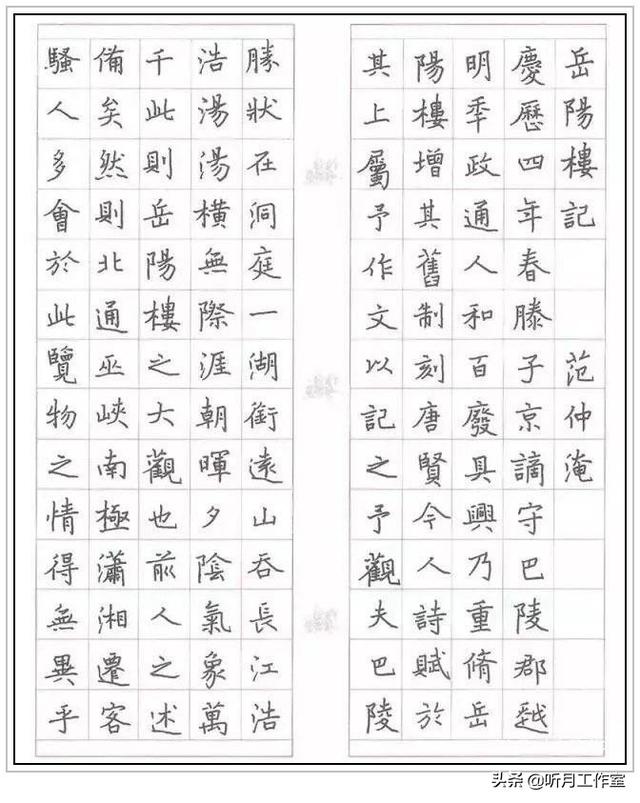 岳陽樓記 范仲淹
慶歷四年春滕子京謫守巴陵郡越
明秊政通人和百廢具興乃重脩岳
陽樓增其舊制刻唐賢今人詩賦於
其上屬予作文以記之予觀夫巴陵
勝狀在洞庭一湖銜遠山吞長江浩
浩湯湯橫無際涯朝暉夕陰氣象萬
千此則岳陽樓之大觀也前人之述
備矣然則北通巫峽南極瀟湘遷客
騷人多會於此覽物之情得無異乎
头条 @听月工作室